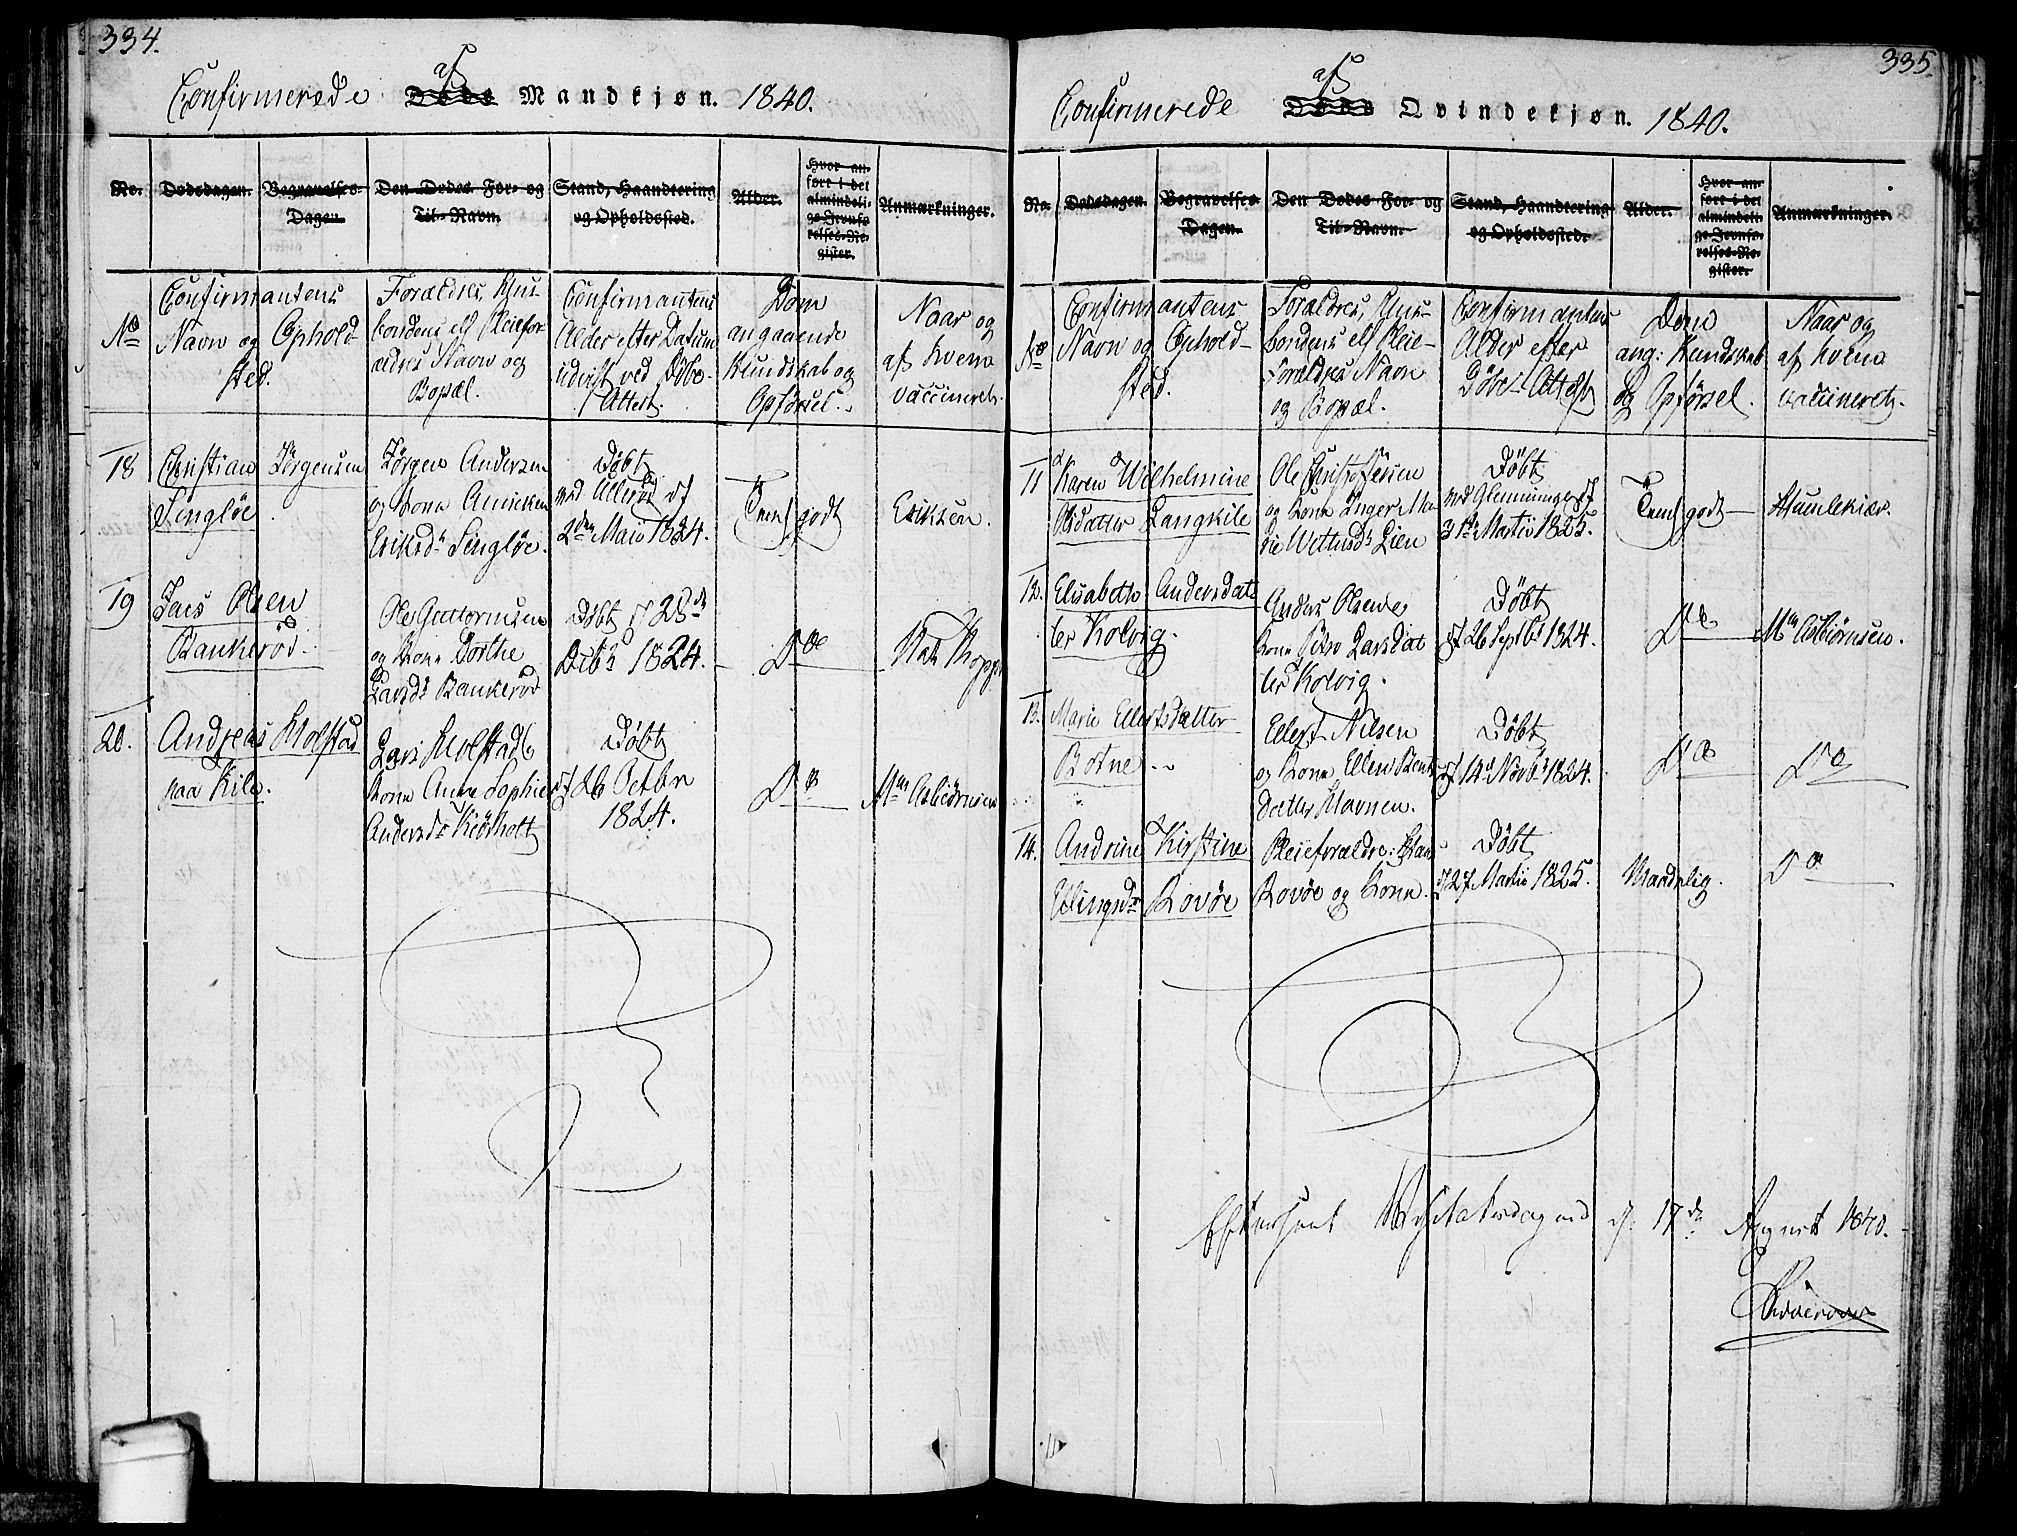 334.
Confirmerede af Døde Mandkjøn. 1840.
No.
Dødsdagen.
Begravelses-
Dagen.
Den Dødes For- og
Til-Navn.
Stand, Haandtering
og Opholdssted.
Alder.
Hvor an-
ført i det
almindeli-
ge Jevnfø-
relses-Re-
gister.
Anmærkninger.
No
Confirmantens
Navn og Ophold-
sted.
Forældres, Huus-
bondens ell Pleiefor-
ældres Navn og
Bopæl.
Confirmantens
Alder efter Datum
udvist ved Døbe-
Attest.
Dom
angaaende
Kundskab og
Opførsel.
Naar og
af hvem
vaccineret.
18
Christian Jørgensen
Singløe.
Jørgen Andersen
og Kone Anneken
Eriksdr Singløe.
Døbt
ved Allerød d
2den Maii 1824.
Temlgodt
Eriksen.
19
Lars Olsen
Bankerød.
Ole Guttormsen
og Kone Dorthe
Larsdr Bankerød
Døbt d 28de
Decbr 1824.
Do
Nat. Kopper
20.
Andreas Holstad
paa Kile.
Lars Holstad &
Kone Anne Sophie
Andersdr Kiørholt
Døbt
d 26 Octbr
1824.
Do
Mm Asbiørnsen
335.
Confirmerede af Døde Qvindekjøn. 1840.
No.
Dødsdagen.
Begravelses-
Dagen.
Den Dødes For- og
Til-Navn.
Stand, Haandtering
og Opholdssted.
Alder.
Hvor an-
ført i det
almindeli-
ge Jevnfø-
relses-Re-
gister.
Anmærkninger.
No
Confirmantens
Navn og Ophold-
sted.
Forældres, Huus-
bondens ell Pleie-
Forældres Navn
og Bopæl.
Confirmantens
Alder efter
Døbe-Attest
Dom
ang: Kundskab
og Opførsel.
Naar og
af hvem
vaccineret.
11
Karen Wilhelmine
Olsdatter Langkile
Ole Christophersen
og Kone Inger Ma-
rie Lien
Døbt
ved Glemminge d
31te Martii 1825.
Temlgodt
Humlekiær.
12.
Elisabeth Andersdat-
ter Kolvig.
Anders Olsen &
Kone Larsdat
ter Kolvig.
Døbt
d 26 Septbr 1824.
Do
Mm Asbiørnsen.
13.
Marie Ellertsdatter
Botne
Ellert Nilsen
og Kone Ellen Bents
datter Havnen.
Døbt
d 14de Novbr 1824.
Do
Do
14.
Andrine Kirstine
Ellingsdr Rovøe
Pleieforældre: Hans
Rovøe og Kone.
Døbt
d 27 Martii 1825.
Maadelig.
Do
Efterseet Visitatsdagen d. 17de August 1840.